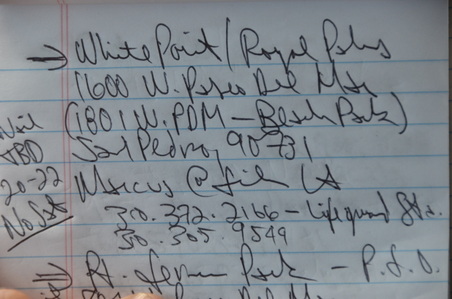 → White Point / Royal Palms
1600 W. Paseo Del Mar
(1801 W. PDM - Beach Park)
San Pedro, 90731
TBD
Marcus @ film LA
20-22
310.372.2166 - Lifeguard Sta.
310.305.9549
→ Pt. Fermin Park -